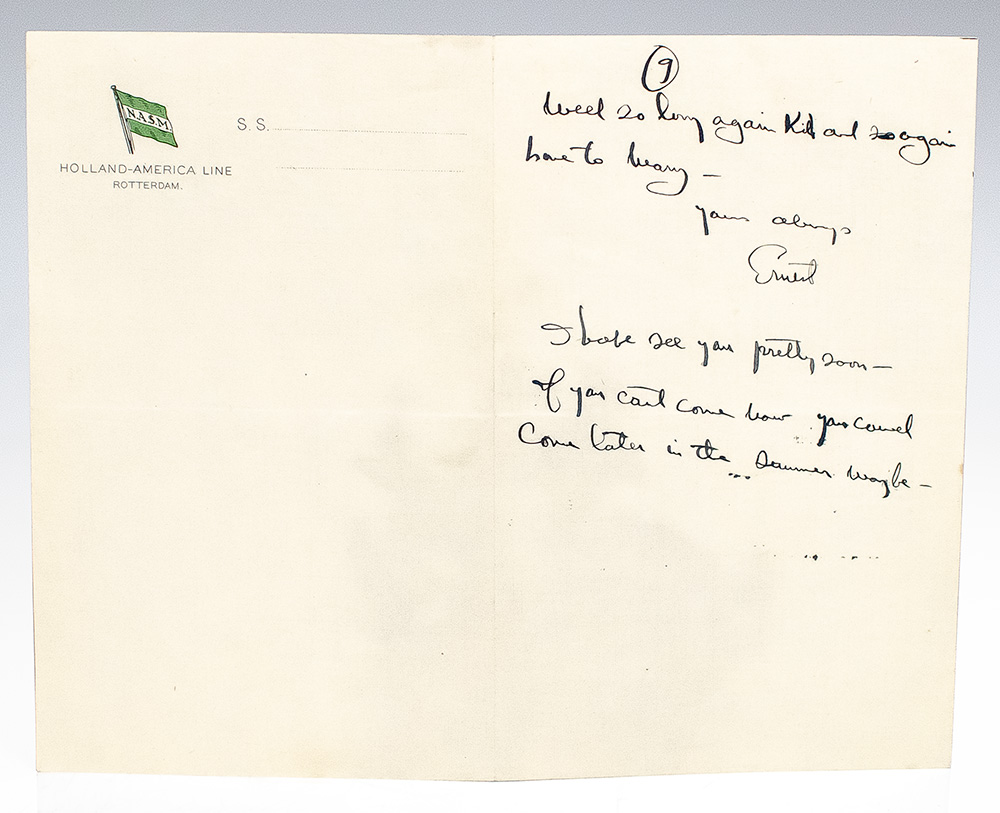 N.A.S.M.
S. S.
HOLLAND-AMERICA LINE
ROTTERDAM.
9
Well so long again Kid and so again
love to Mary —
yours always
Ernest
I hope see you pretty soon —
If you can't come now you could
Come later in the summer maybe —